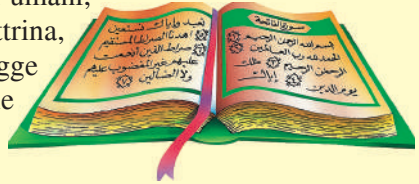 umani,
ttrina,
gge
e
سورة الفاتحة
بسم الله الرحمن الرحيم
الحمد لله رب العالمين
الرحمن الرحيم ملك
يوم الدين إياك
نعبد وإياك نستعين
اهدنا الصراط المستقيم
صراط الذين أنعمت
عليهم غير المغضوب عليهم
ولا الضالين